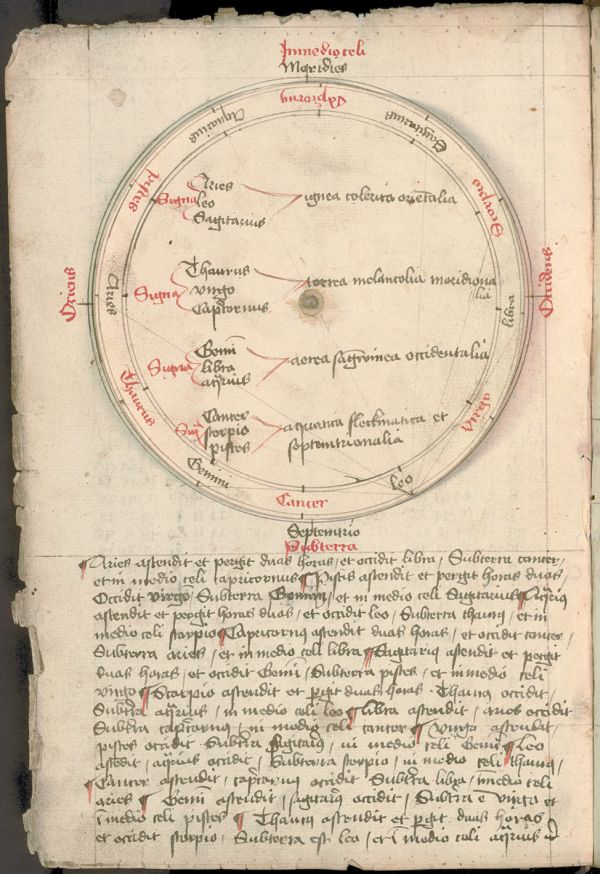 In medio celi
Meridies
Capricornus
Aquarius
Sagitarius
Pisces
Scorpius
Signa
Aries
leo
Sagitarius
ignea colerica orientalia
Oriens
Aries
Signa
Thaurus
virgo
Capricornus
terrea melancolia meridiona
lia
libra
Occidens
Signa
Gemini
libra
aquarius
aerea sangwinea occidentalia
Thaurus
Virgo
Sig
Cancer
scorpio
pisces
aquatica fleckmatica et
septemtrionalia
Gemini
Leo
Cancer
Septemtrio
Subterra
Aries ascendit et pergit duas horas, et occidit libra, Subterra cancer,
et in medio celi capricornus Piscis ascendit et pergit horas duas
Occidit virgo, Subterra Gemini, et in medio celi Sagitarius Aquarius
ascendit et pergit horas duas, et occidit leo, Subterra thaurus, et in
medio celi scorpio Capricornus ascendit duas horas, et occidit cancer,
Subterra aries, et in medio celi libra Sagitarius ascendit et pergit
duas horas, et occidit Gemini, Subterra pisces, et in medio celi
virgo Scorpio ascendit et pergit duas horas. Thaurus occidit,
Subterra aquarius, in medio celi leo libra ascendit, aries occidit
Subterra capricornus, in medio celi cancer Virgo ascendit,
pisces occidit Subterra sagitarius, in medio celi Gemini Leo
ascendit, aquarius occidit, Subterra scorpio, in medio celi thaurus,
Cancer ascendit, capricornus occidit Subterra libra, in medio celi
aries Gemini ascendit, sagitarius occidit, Subterra est virgo et
in medio celi pisces Thaurus ascendit et pergit duas horas
et occidit scorpio, Subterra est leo, et in medio celi aquarius